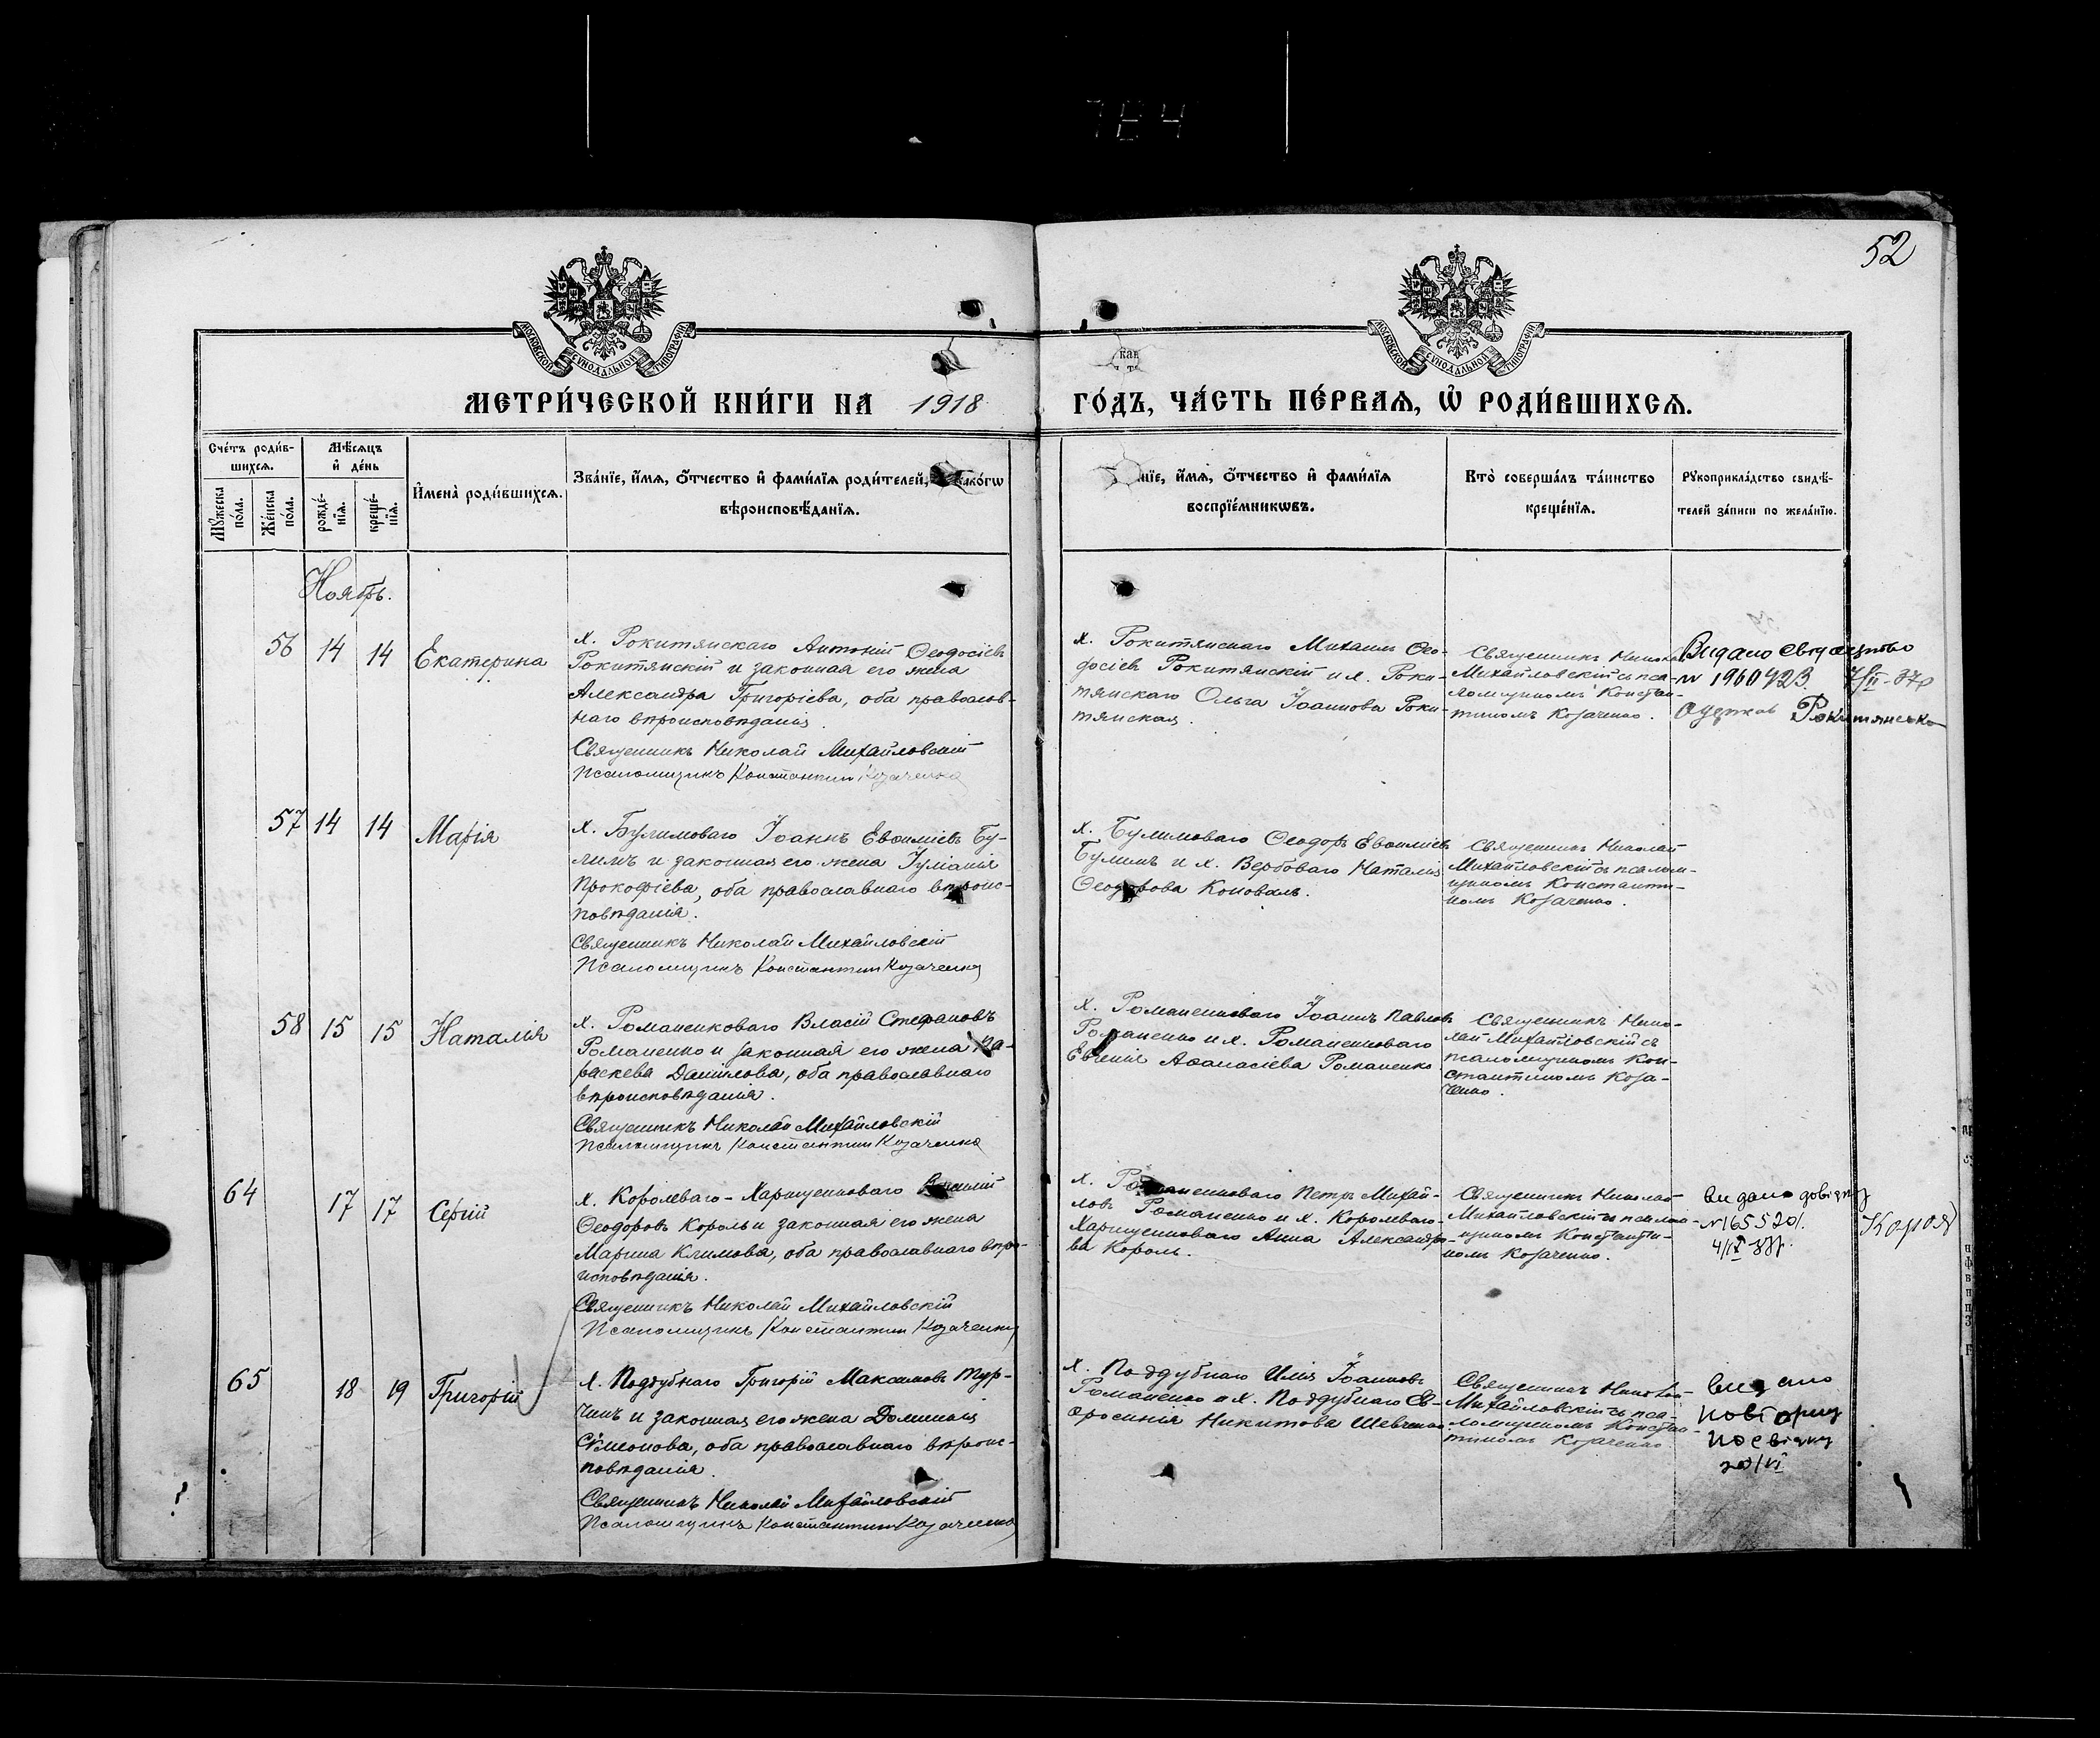 52
МОСКОВСКОЙ СѴНОДАЛЬНОЙ ТИПОГРАФІИ
МОСКОВСКОЙ СѴНОДАЛЬНОЙ ТИПОГРАФІИ
МЕТРИ́ЧЕСКОЙ КНИ́ГИ НА 1918 ГО́ДЪ, ЧА́СТЬ ПЕ́РВАЯ, Ѡ҆ РОДИ́ВШИХСЯ.
Сче́тъ роди́в-
шихся.
Мѣ́сяцъ
и҆ де́нь
Мꙋ́жеска
по́ла.
Же́нска
по́ла.
рожде́-
нїя.
креще́-
нїя.
И҆мена̀ роди́вшихся.
Зва́нїе, и҆́мя, ѻ҆́тчество и҆ фами́лїя роди́телей, како́гѡ
вѣроисповѣ́данїя.
нїе, и҆́мя, ѻ҆́тчество и҆ фами́лїя
воспрїе́мникѡвъ.
Кто̀ соверша́лъ та́инство
креще́нїя.
Рꙋкоприкла́дство свидѣ́-
телей за́писи по жела́нїю.
Ноябрь.
56 14 14 Екатерина
х. Рокитянскаго Антоній Ѳеодосіевъ
Рокитянскій и законная его жена
Александра Григоріева, оба православ-
наго вѣроисповѣданія.
Священникъ Николай Михайловскій
Псаломщикъ Константин Козаченко
х. Рокитянскаго Михаилъ Ѳео-
досіевъ Рокитянскій и х. Роки-
тянскаго Ольга Іоаннова Роки-
тянская.
Священникъ Никола
Михайловскій съ пса-
ломщикомъ Констан-
тиномъ Козаченко.
Видано свідоцтво
№ 1960423
Рокитянсько
57 14 14 Марія
х. Булимоваго Іоаннъ Евѳиміевъ Бу-
лимъ и законная его жена Іуліанія
Прокофіева, оба православнаго вѣроис-
повѣданія.
Священникъ Николай Михайловскій
Псаломщикъ Константин Козаченко
х. Булимоваго Ѳеодоръ Евѳиміевъ
Булимъ и х. Вербоваго Наталія
Ѳеодорова Коноваль.
Священникъ Николай
Михайловскій съ псалом-
щикомъ Константи-
номъ Козаченко.
58 15 15 Наталія
х. Романенковаго Власій Стефановъ
Романенко и законная его жена Па-
раскева Даніилова, оба православнаго
вѣроисповѣданія.
Священникъ Николай Михайловскій
Псаломщикъ Константин Козаченко
х. Романенковаго Іоаннъ Павловъ
Романенко и х. Романенковаго
Евгенія Аѳанасіева Романенко
Священникъ Нико-
лай Михайловскій съ
псаломщикомъ Кон-
стантиномъ Коза-
ченко.
64 17 17 Сергій
х. Королеваго-Харищенковаго Василій
Ѳеодоровъ Король и законная его жена
Марина Климова, оба православнаго вѣро-
исповѣданія.
Священникъ Николай Михайловскій
Псаломщикъ Константин Козаченко
х. Романенковаго Петръ Михай-
ловъ Романенко и х. Королеваго-
Харищенковаго Анна Александро-
ва Король.
Священникъ Николай
Михайловскій съ псалом-
щикомъ Константи-
номъ Козаченко.
видано довідку
№ 165520
Король
65 18 19 Григорій
х. Поддубнаго Григорій Максимовъ Тур-
чинъ и законная его жена Домникія
Сѵмеонова, оба православнаго вѣроис-
повѣданія.
Священникъ Николай Михайловскій
Псаломщикъ Константин Козаченко
х. Поддубнаго Илія Іоанновъ
Романенко и х. Поддубнаго Ев-
фросинія Никитова Шевченко
Священникъ Николай
Михайловскій съ пса-
ломщикомъ Констан-
тиномъ Козаченко
видано
повторну
посвідку
20/VI